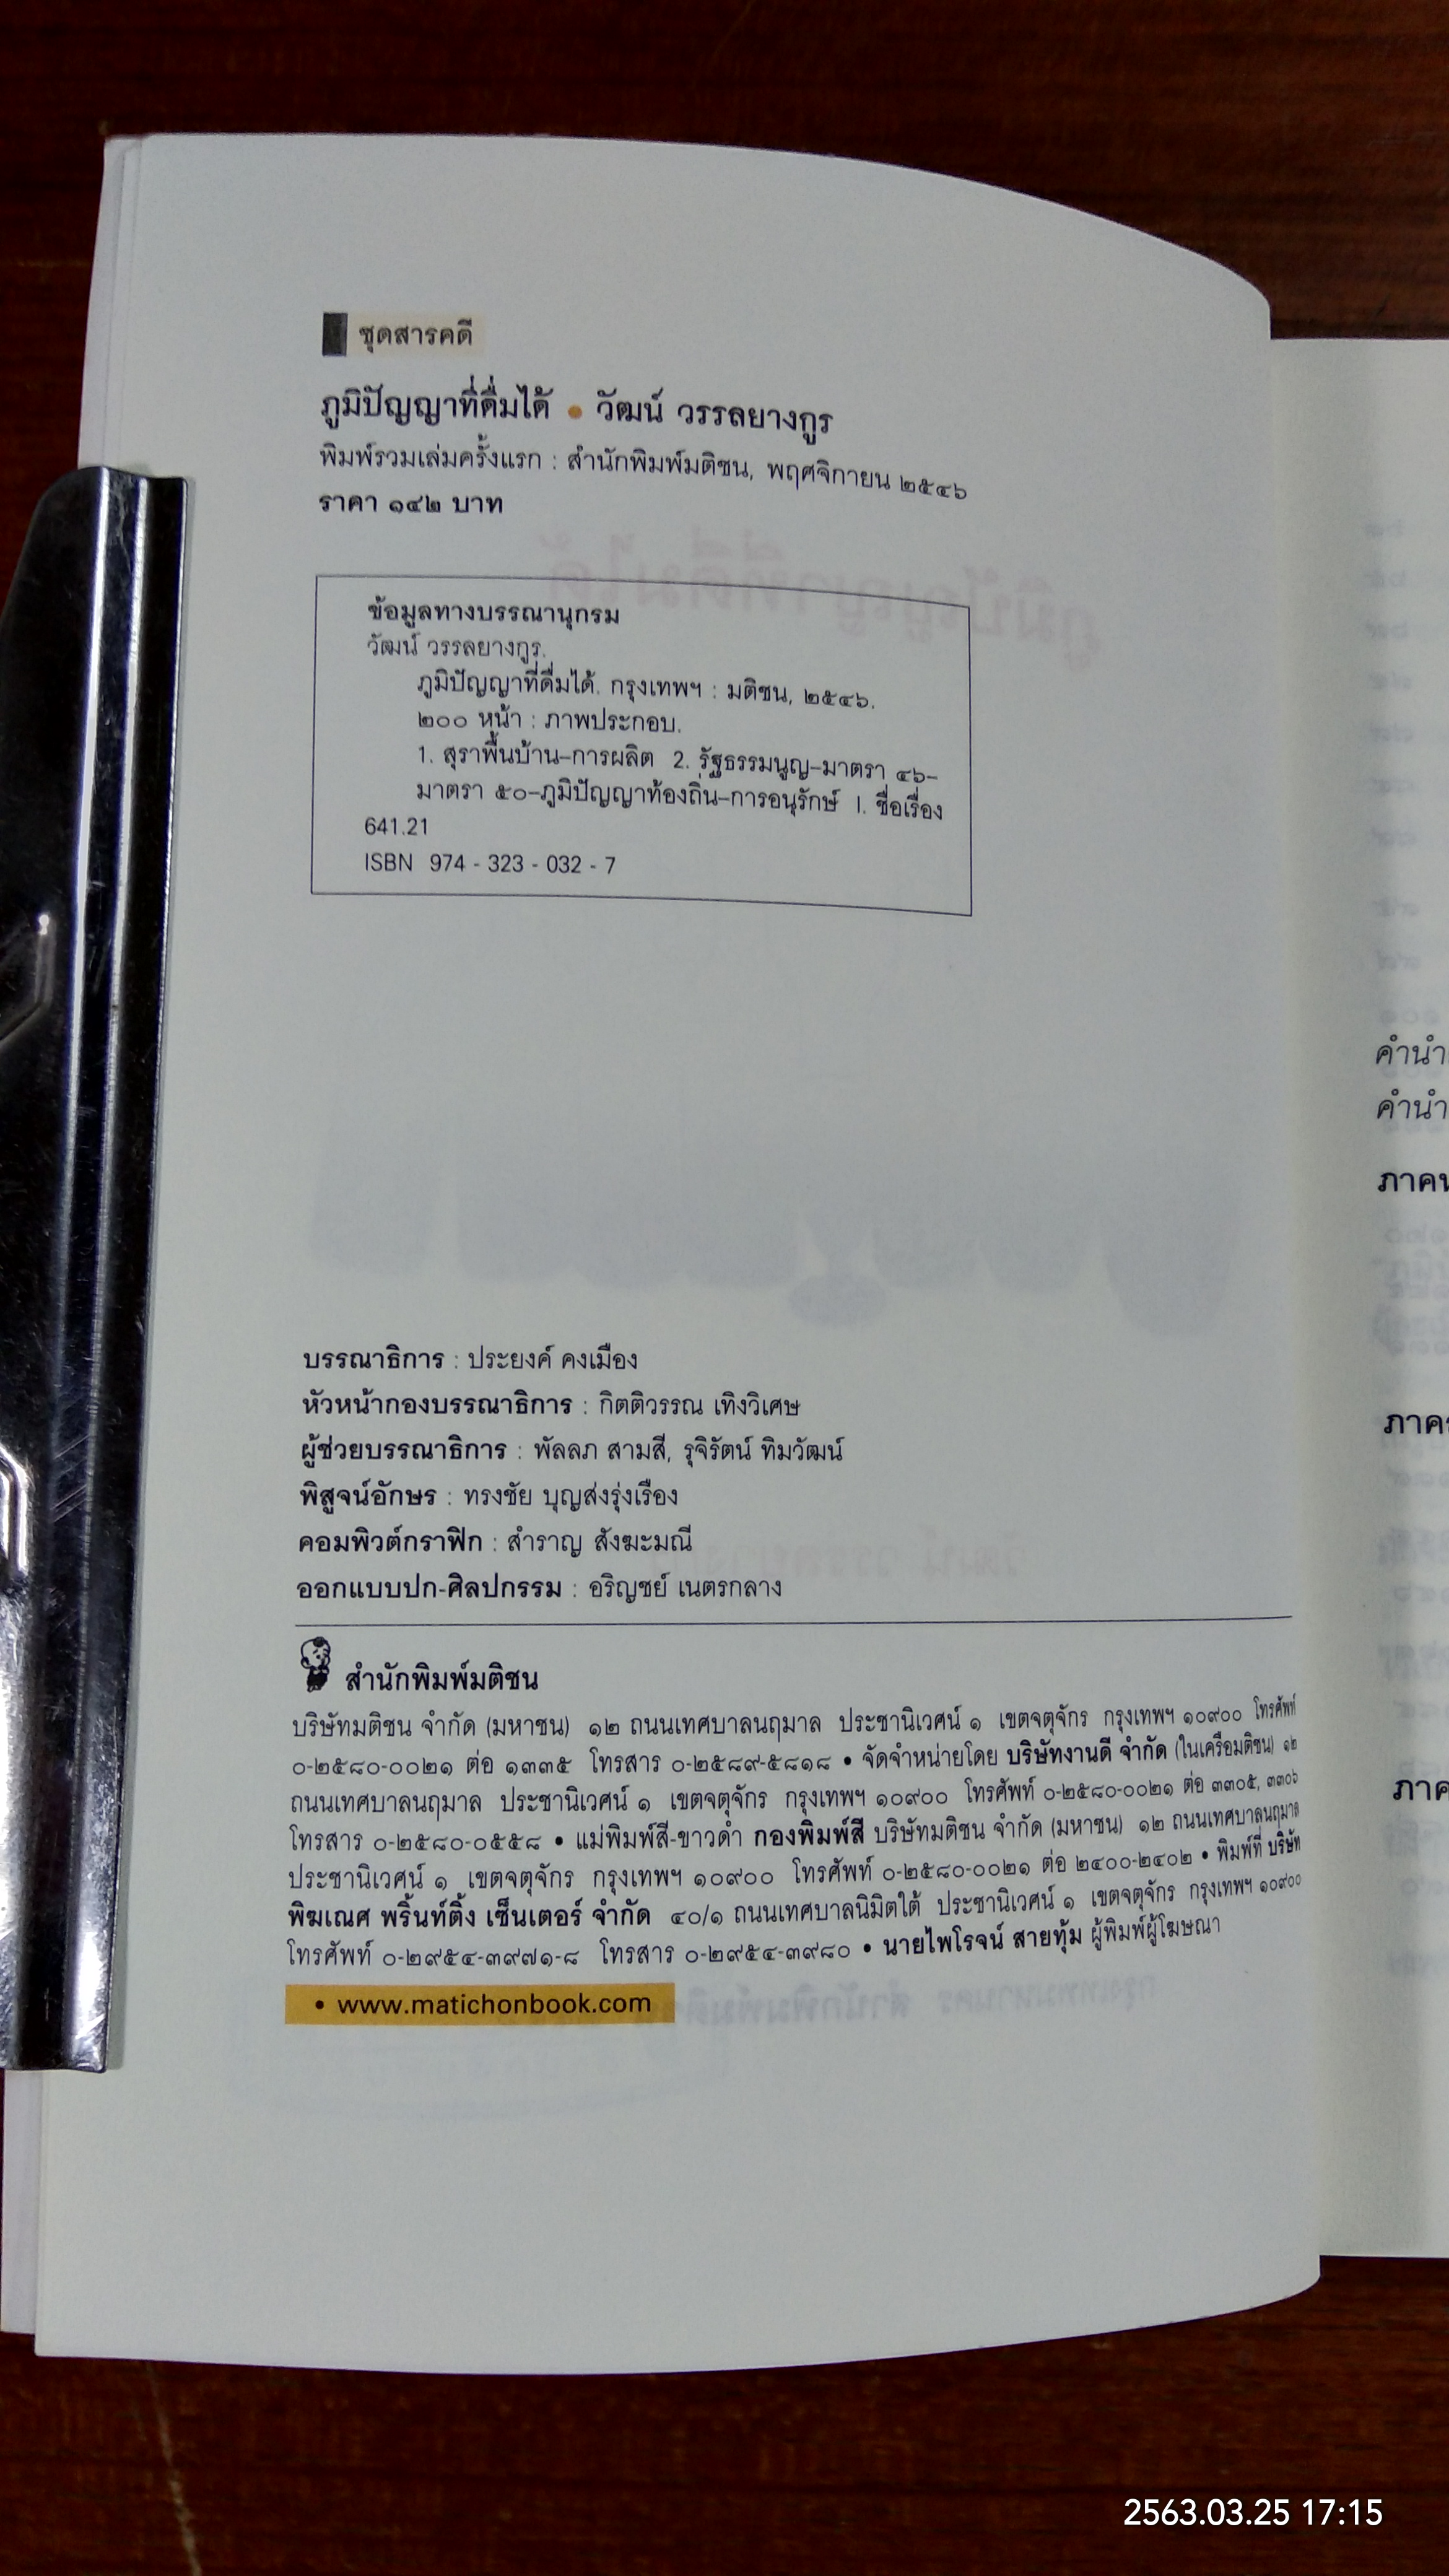 ชุดสารคดี
ภูมิปัญญาที่ดื่มได้ • วัฒน์ วรรลยางกูร
พิมพ์รวมเล่มครั้งแรก : สำนักพิมพ์มติชน, พฤศจิกายน ๒๕๔๖
ราคา ๑๔๒ บาท
ข้อมูลทางบรรณานุกรม
วัฒน์ วรรลยางกูร.
ภูมิปัญญาที่ดื่มได้. กรุงเทพฯ : มติชน, ๒๕๔๖.
๒๐๐ หน้า : ภาพประกอบ.
1. สุราพื้นบ้าน–การผลิต 2. รัฐธรรมนูญ–มาตรา ๔๖–
มาตรา ๕๐–ภูมิปัญญาท้องถิ่น–การอนุรักษ์ I. ชื่อเรื่อง
641.21
ISBN 974 - 323 - 032 - 7
บรรณาธิการ : ประยงค์ คงเมือง
หัวหน้ากองบรรณาธิการ : กิตติวรรณ เทิงวิเศษ
ผู้ช่วยบรรณาธิการ : พัลลภ สามสี, รุจิรัตน์ ทิมวัฒน์
พิสูจน์อักษร : ทรงชัย บุญส่งรุ่งเรือง
คอมพิวต์กราฟิก : สำราญ สังฆะมณี
ออกแบบปก-ศิลปกรรม : อริญชย์ เนตรกลาง
สำนักพิมพ์มติชน
บริษัทมติชน จำกัด (มหาชน) ๑๒ ถนนเทศบาลนฤมาล ประชานิเวศน์ ๑ เขตจตุจักร กรุงเทพฯ ๑๐๙๐๐ โทรศัพท์
๐-๒๕๘๐-๐๐๒๑ ต่อ ๑๓๓๕ โทรสาร ๐-๒๕๘๙-๕๘๑๘ • จัดจำหน่ายโดย บริษัทงานดี จำกัด (ในเครือมติชน) ๑๒
ถนนเทศบาลนฤมาล ประชานิเวศน์ ๑ เขตจตุจักร กรุงเทพฯ ๑๐๙๐๐ โทรศัพท์ ๐-๒๕๘๐-๐๐๒๑ ต่อ ๓๓๐๕, ๓๓๐๖
โทรสาร ๐-๒๕๘๐-๐๕๕๘ • แม่พิมพ์สี-ขาวดำ กองพิมพ์สี บริษัทมติชน จำกัด (มหาชน) ๑๒ ถนนเทศบาลนฤมาล
ประชานิเวศน์ ๑ เขตจตุจักร กรุงเทพฯ ๑๐๙๐๐ โทรศัพท์ ๐-๒๕๘๐-๐๐๒๑ ต่อ ๒๔๐๐-๒๔๐๒ • พิมพ์ที่ บริษัท
พิฆเณศ พริ้นท์ติ้ง เซ็นเตอร์ จำกัด ๔๐/๑ ถนนเทศบาลนิมิตใต้ ประชานิเวศน์ ๑ เขตจตุจักร กรุงเทพฯ ๑๐๙๐๐
โทรศัพท์ ๐-๒๙๕๔-๓๙๗๑-๘ โทรสาร ๐-๒๙๕๔-๓๙๘๐ • นายไพโรจน์ สายทุ้ม ผู้พิมพ์ผู้โฆษณา
• www.matichonbook.com
คำนำ
คำนำ
2563.03.25 17:15